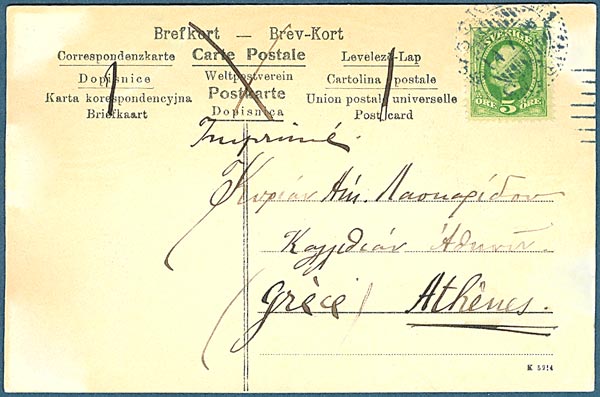 Brefkort — Brev-Kort
Correspondenzkarte Carte Postale Levelező-Lap
Dopisnice Weltpostverein Cartolina postale
Karta korespondencyjna Postkarte Union postale universelle
Briefkaart Dopisnica Post card
SVERIGE
ÖRE 5 ÖRE
Imprimé.
Κυρίαν Αἰκ. Λασκαρίδου
Καλλιθέαν Ἀθηνῶν.
(Grèce) Athènes.